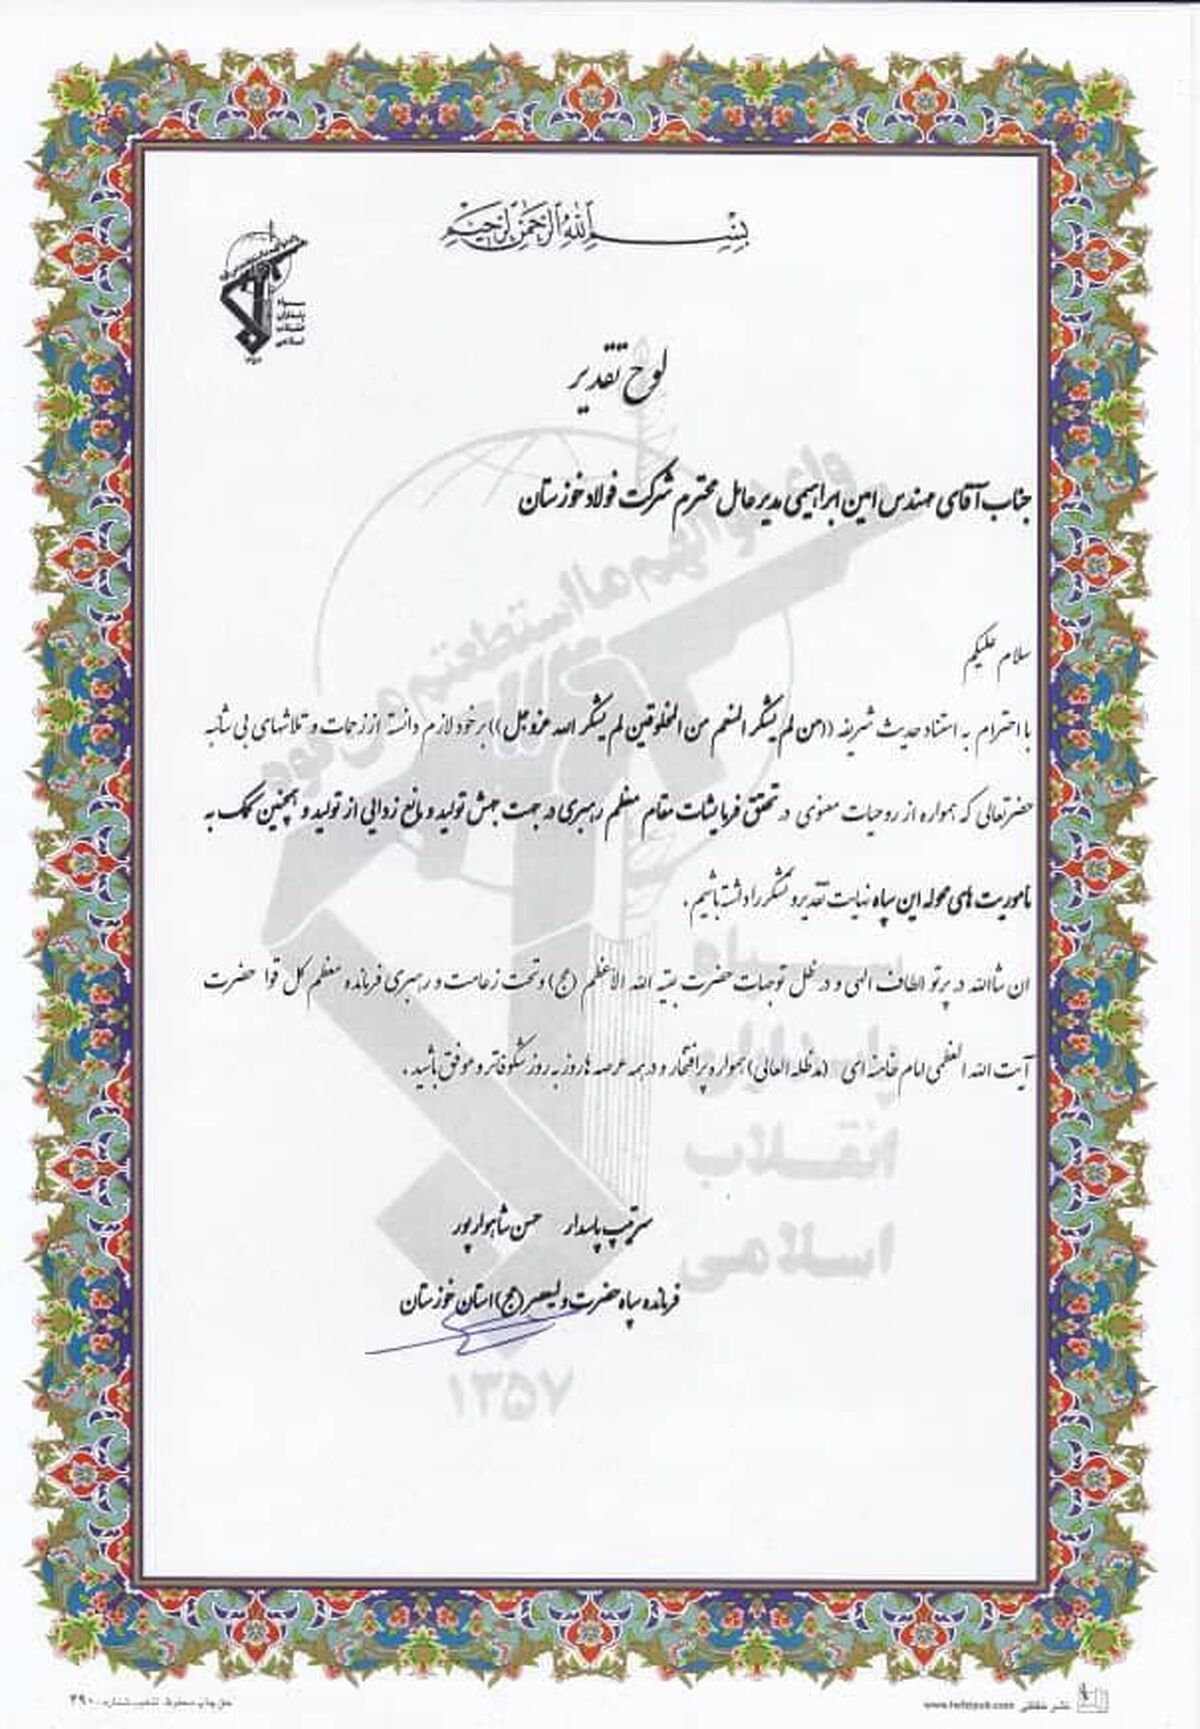 بسم الله الرحمن الرحیم
سپاه
پاسداران
انقلاب
اسلامی
۱۳۵۷
لوح تقدیر
جناب آقای مهندس امین ابراهیمی مدیرعامل محترم شرکت فولاد خوزستان
سلام علیکم
با احترام به استناد حدیث شریفه ((من لم یشکر المنعم من المخلوقین لم یشکر الله عزوجل)) بر خود لازم دانسته از زحمات و تلاشهای بی شائبه
حضرتعالی که همواره از روحیات معنوی در تحقق فرمایشات مقام معظم رهبری در جهت جهش تولید و مانع زدایی از تولید و همچنین کمک به
ماموریت های محوله این سپاه نهایت تقدیر و تشکر را داشته باشیم.
ان شاالله در پرتو الطاف الهی و در ظل توجهات حضرت بقیه الله الاعظم (عج) و تحت زعامت و رهبری فرمانده معظم کل قوا حضرت
آیت الله العظمی امام خامنه ای (مدظله العالی) همواره پرافتخار و در همه عرصه ها روز به روز شکوفاتر و موفق باشید.
سرتیپ پاسدار حسن شاهوارپور
فرمانده سپاه حضرت ولیعصر (عج) استان خوزستان
واعدوا لهم ما استطعتم من قوه
سپاه
پاسداران
انقلاب
اسلامی
۱۳۵۷
حق چاپ محفوظ